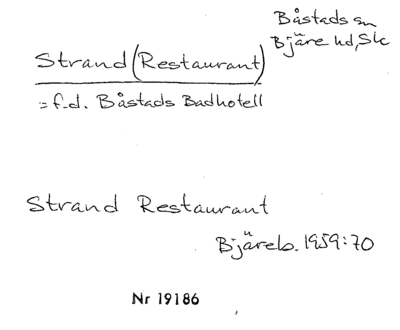 Båstads sn
Bjäre hd, Sk
Strand (Restaurant)
= f.d. Båstads Badhotell
Strand Restaurant
Bjäreb. 1959:70
Nr 19186